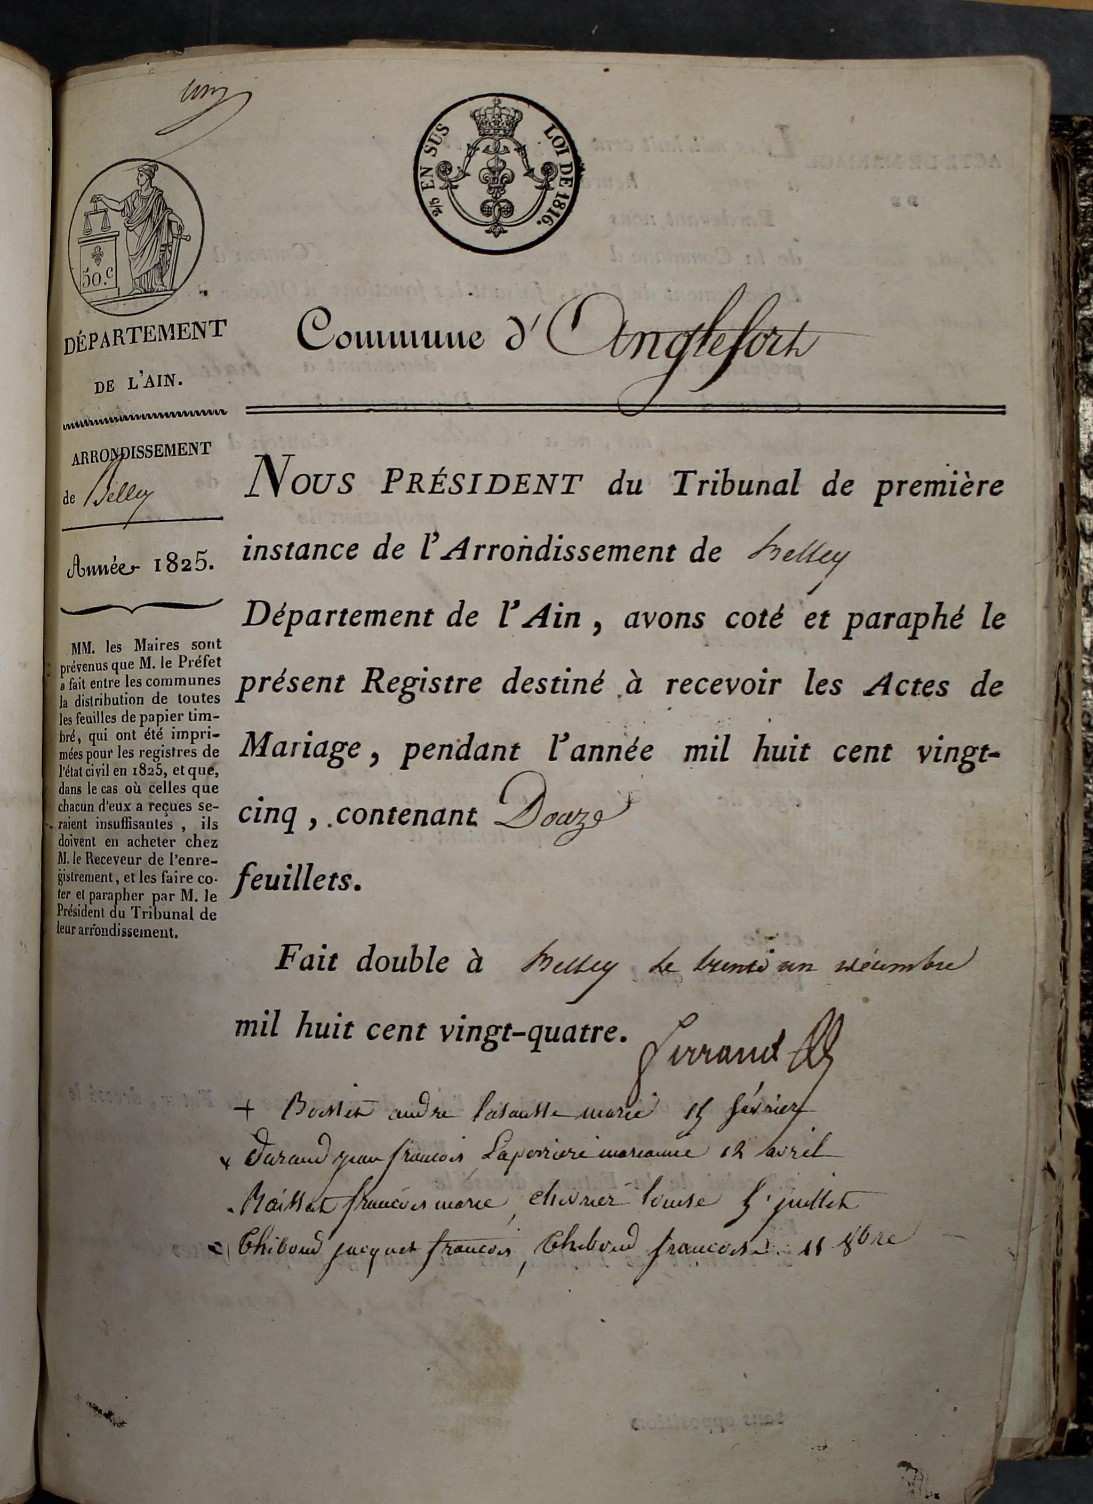 un
2/5 EN SUS
LOI DE 1816.
50.c
DÉPARTEMENT
DE L'AIN.
ARRONDISSEMENT
de Belley
Année 1825.
MM. les Maires sont
prévenus que M. le Préfet
a fait entre les communes
la distribution de toutes
les feuilles de papier tim-
bré, qui ont été impri-
mées pour les registres de
l'état civil en 1825, et que,
dans le cas où celles que
chacun d'eux a reçues se-
raient insuffisantes, ils
doivent en acheter chez
M. le Receveur de l'enre-
gistrement, et les faire co-
ter et parapher par M. le
Président du Tribunal de
leur arrondissement.
Commune d'Anglefort
NOUS PRÉSIDENT du Tribunal de première
instance de l'Arrondissement de belley
Département de l'Ain, avons coté et paraphé le
présent Registre destiné à recevoir les Actes de
Mariage, pendant l'année mil huit cent vingt-
cinq, contenant Douze
feuillets.
Fait double à belley le trente un décembre
mil huit cent vingt-quatre. Ferrand
+ andre marie 15 février
Durand jean francois, Laperriere marianne 12 avril
francois marie, chevrier louise 5 juillet
Thiboud jacques francois, Thiboud francoise 11 8bre